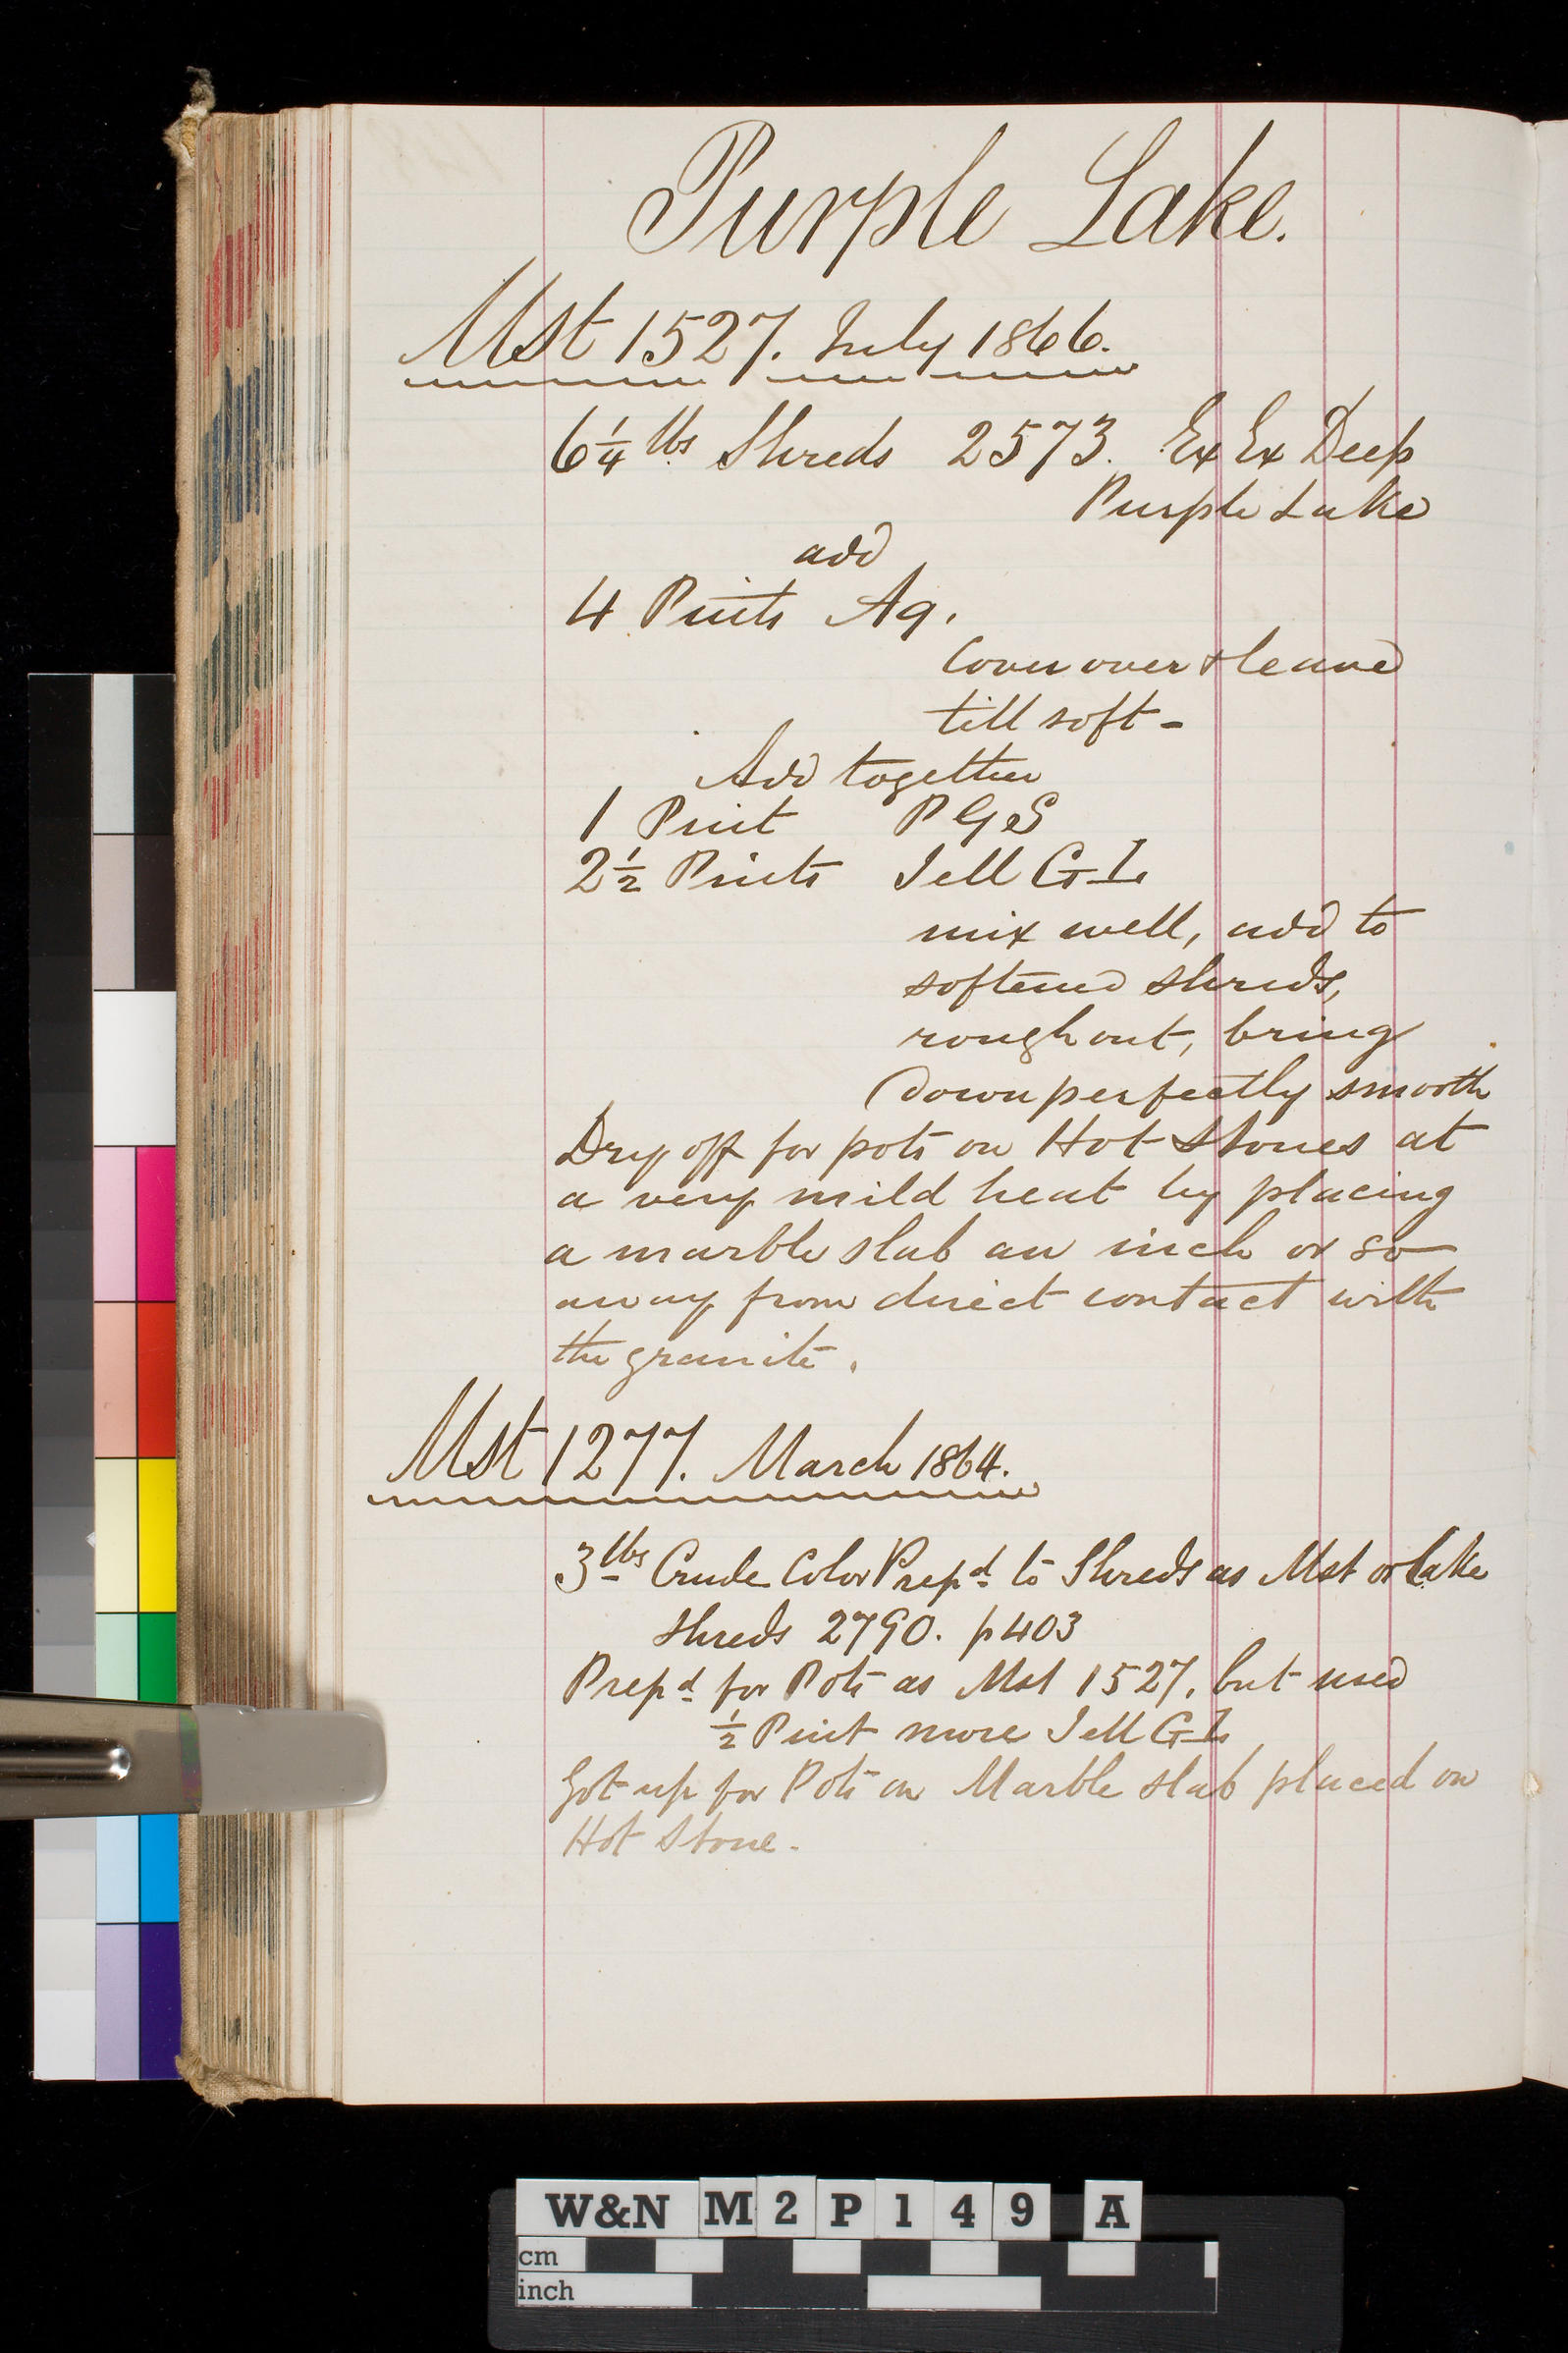 Purple Lake.
Mst 1527. July 1866.
6 1/4 lbs Shreds 2573. Ex Ex Deep
Purple Lake
add
4 Pints Aq.
Cover over & leave
till soft -
Add together
1 Pint P G S
2 1/2 Pints Jell G I
mix well, add to
softened shreds,
rough out, bring
down perfectly smooth
Dry off for pots on Hot Stones at
a very mild heat by placing
a marble slab an inch or so
away from direct contact with
the granite.
Mst 1277. March 1864.
3 lbs Crude Color Prepd to Shreds as Mst or Cake
Shreds 2790. p 403
Prepd for Pots as Mst 1527, but used
1/2 Pint more Jell G I
Got up for Pots on Marble slab placed on
Hot Stone.
W&N M2P149 A
cm
inch